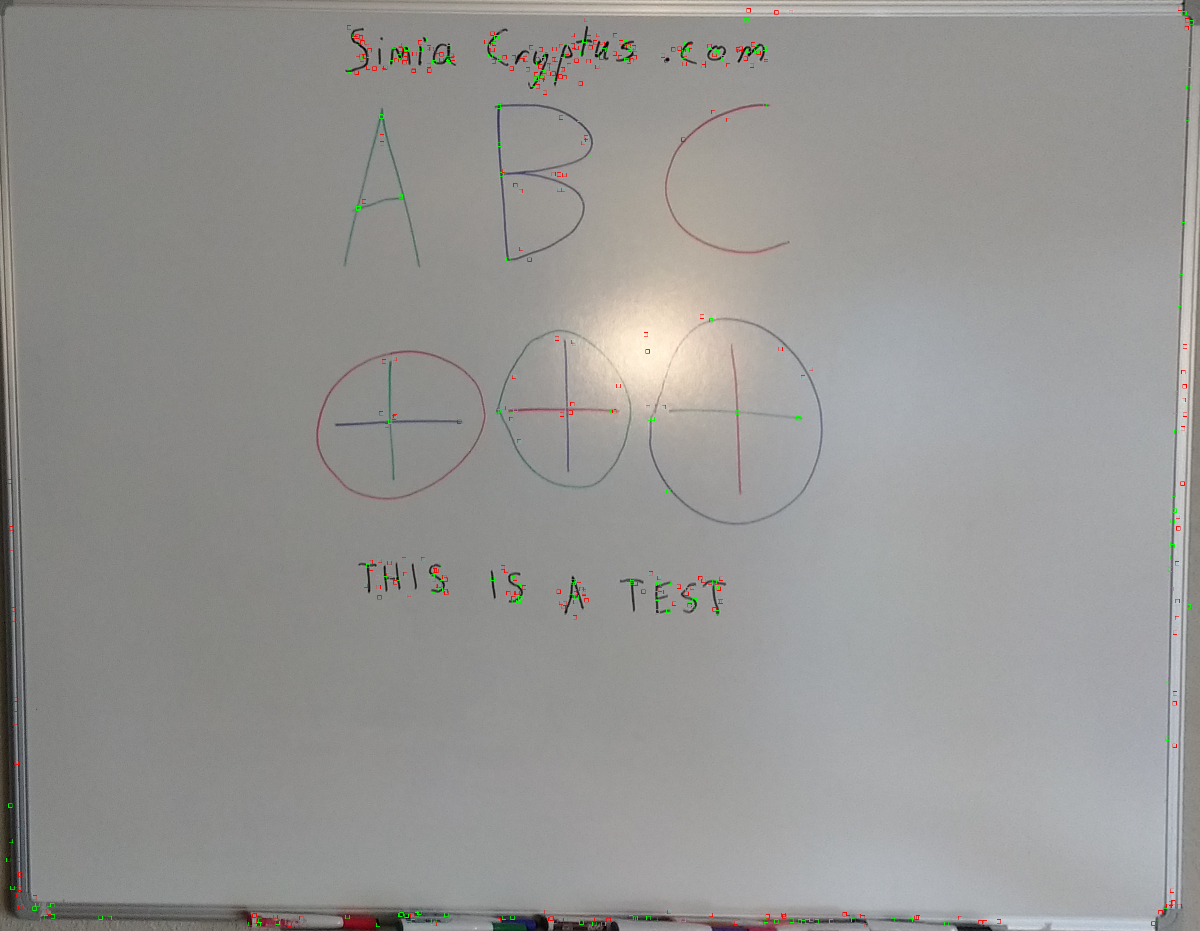 Simia Cryptus .com
A B C
THIS IS A TEST